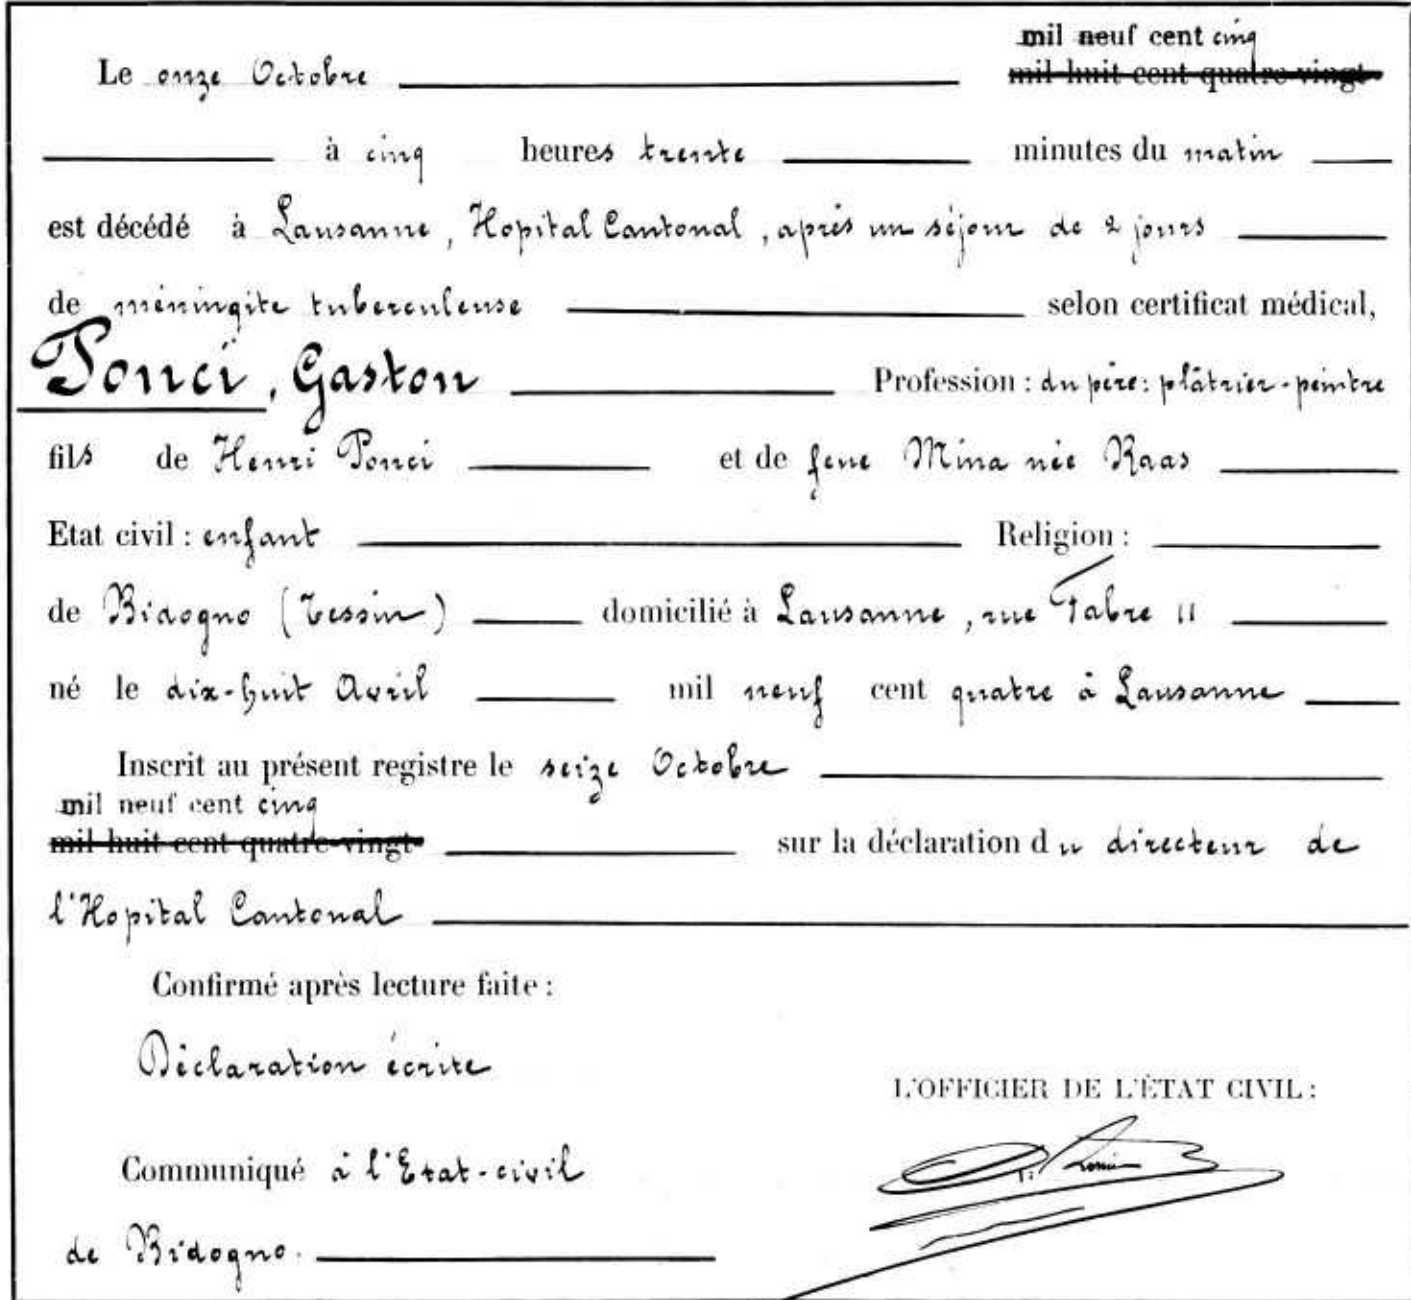 mil neuf cent cinq
Le onze Octobre mil huit cent quatre-vingt-
à cinq heures trente minutes du matin
est décédé à Lausanne, Hopital Cantonal, après un séjour de 2 jours
de méningite tuberculeuse selon certificat médical,
Ponci, Gaston Profession : du père: plâtrier-peintre
fils de Henri Ponci et de feue Mina née Raas
Etat civil : enfant Religion :
de Bidogno (Tessin) domicilié à Lausanne, rue Fabre 11
né le dix-huit Avril mil neuf cent quatre à Lausanne
Inscrit au présent registre le seize Octobre
mil neuf cent cinq
mil huit cent quatre-vingt- sur la déclaration du directeur de
l'Hopital Cantonal
Confirmé après lecture faite :
Déclaration écrite
L'OFFICIER DE L'ÉTAT CIVIL :
Communiqué à l'Etat-civil
de Bidogno.